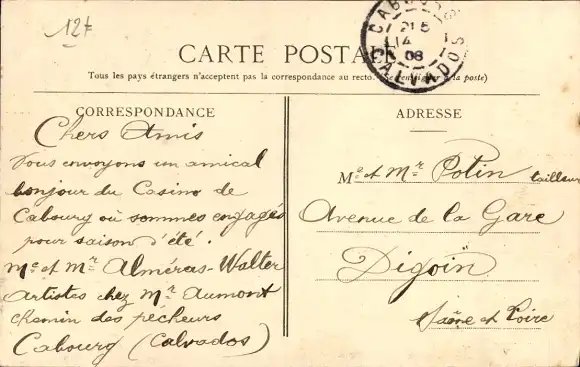 12f
CABOURG
21 5
14
08
CALVADOS
CARTE POSTALE
Tous les pays étrangers n'acceptent pas la correspondance au recto. (Se renseigner à la poste)
CORRESPONDANCE
Chers Amis
Vous envoyons un amical
bonjour du Casino de
Cabourg où sommes engagés
pour saison d'été.
Me et Mr Alméras-Walter
Artistes chez Mr Aumont
chemin des pêcheurs
Cabourg (Calvados)
ADRESSE
Me et Mr Potin tailleur
Avenue de la Gare
Digoin
Saône et Loire